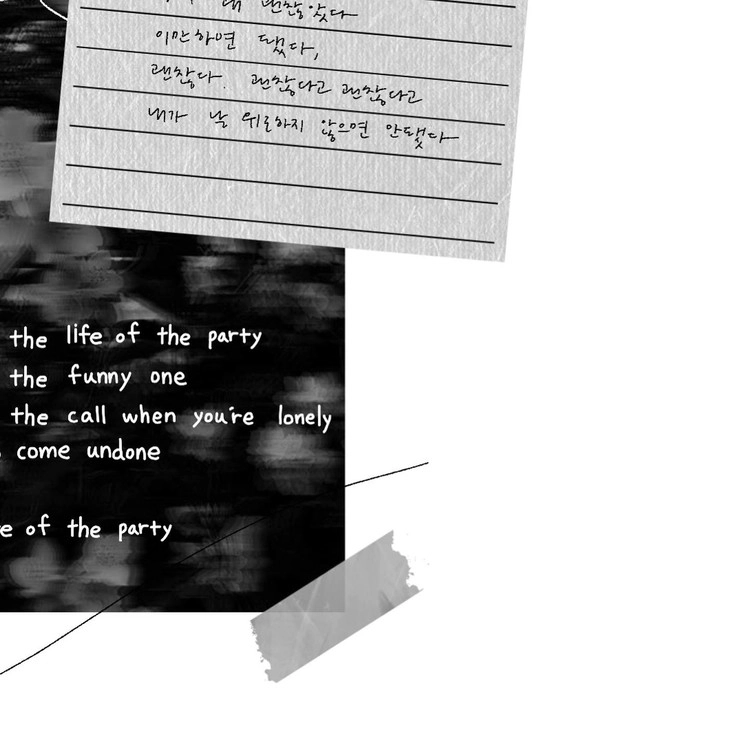 괜찮았다
이만하면 됐다,
괜찮다. 괜찮다고 괜찮다고
내가 날 위로하지 않으면 안됐다
the life of the party
the funny one
the call when you're lonely
come undone
of the party